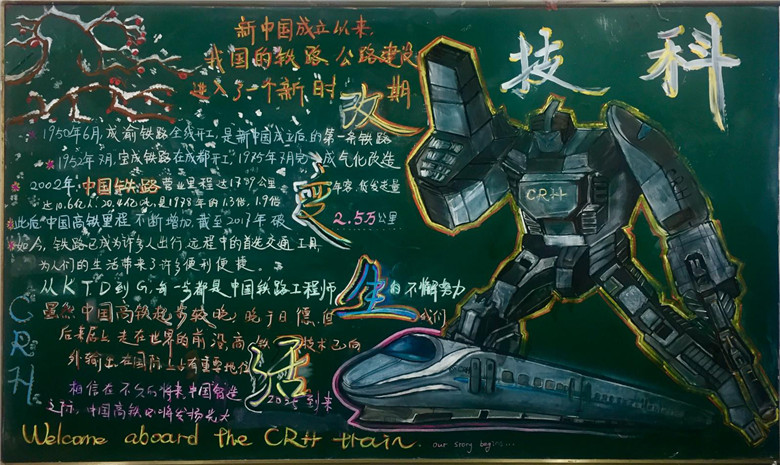 科技
改变生活
新中国成立以来
我国的铁路公路建设
进入了一个新时期
1950年6月,成渝铁路全线开工,是新中国成立后的第一条铁路
1952年7月,宝成铁路在成都开工,1975年7月完成气化改造
2002年 中国铁路营业里程达 公里 年客货发送量
达10.6亿人20.4亿吨,是1978年的1.3倍、1.9倍
此后中国高铁里程不断增加,截至2019年破2.55万公里
如今,铁路已成为许多人出行远程中的首选交通工具,
为人们的生活带来了许多便利便捷。
从KTD到G,每一步都是中国铁路工程师的不懈努力
虽然中国高铁起步较晚,晚于日德,但我们
后来居上走在世界的前沿,高铁技术已向
外输出,在国际上占有重要地位
相信在不久的将来,中国智造2025到来
之际,中国高铁必将发扬光大
CRH
CRH
Welcome aboard the CRH train. our story begins...